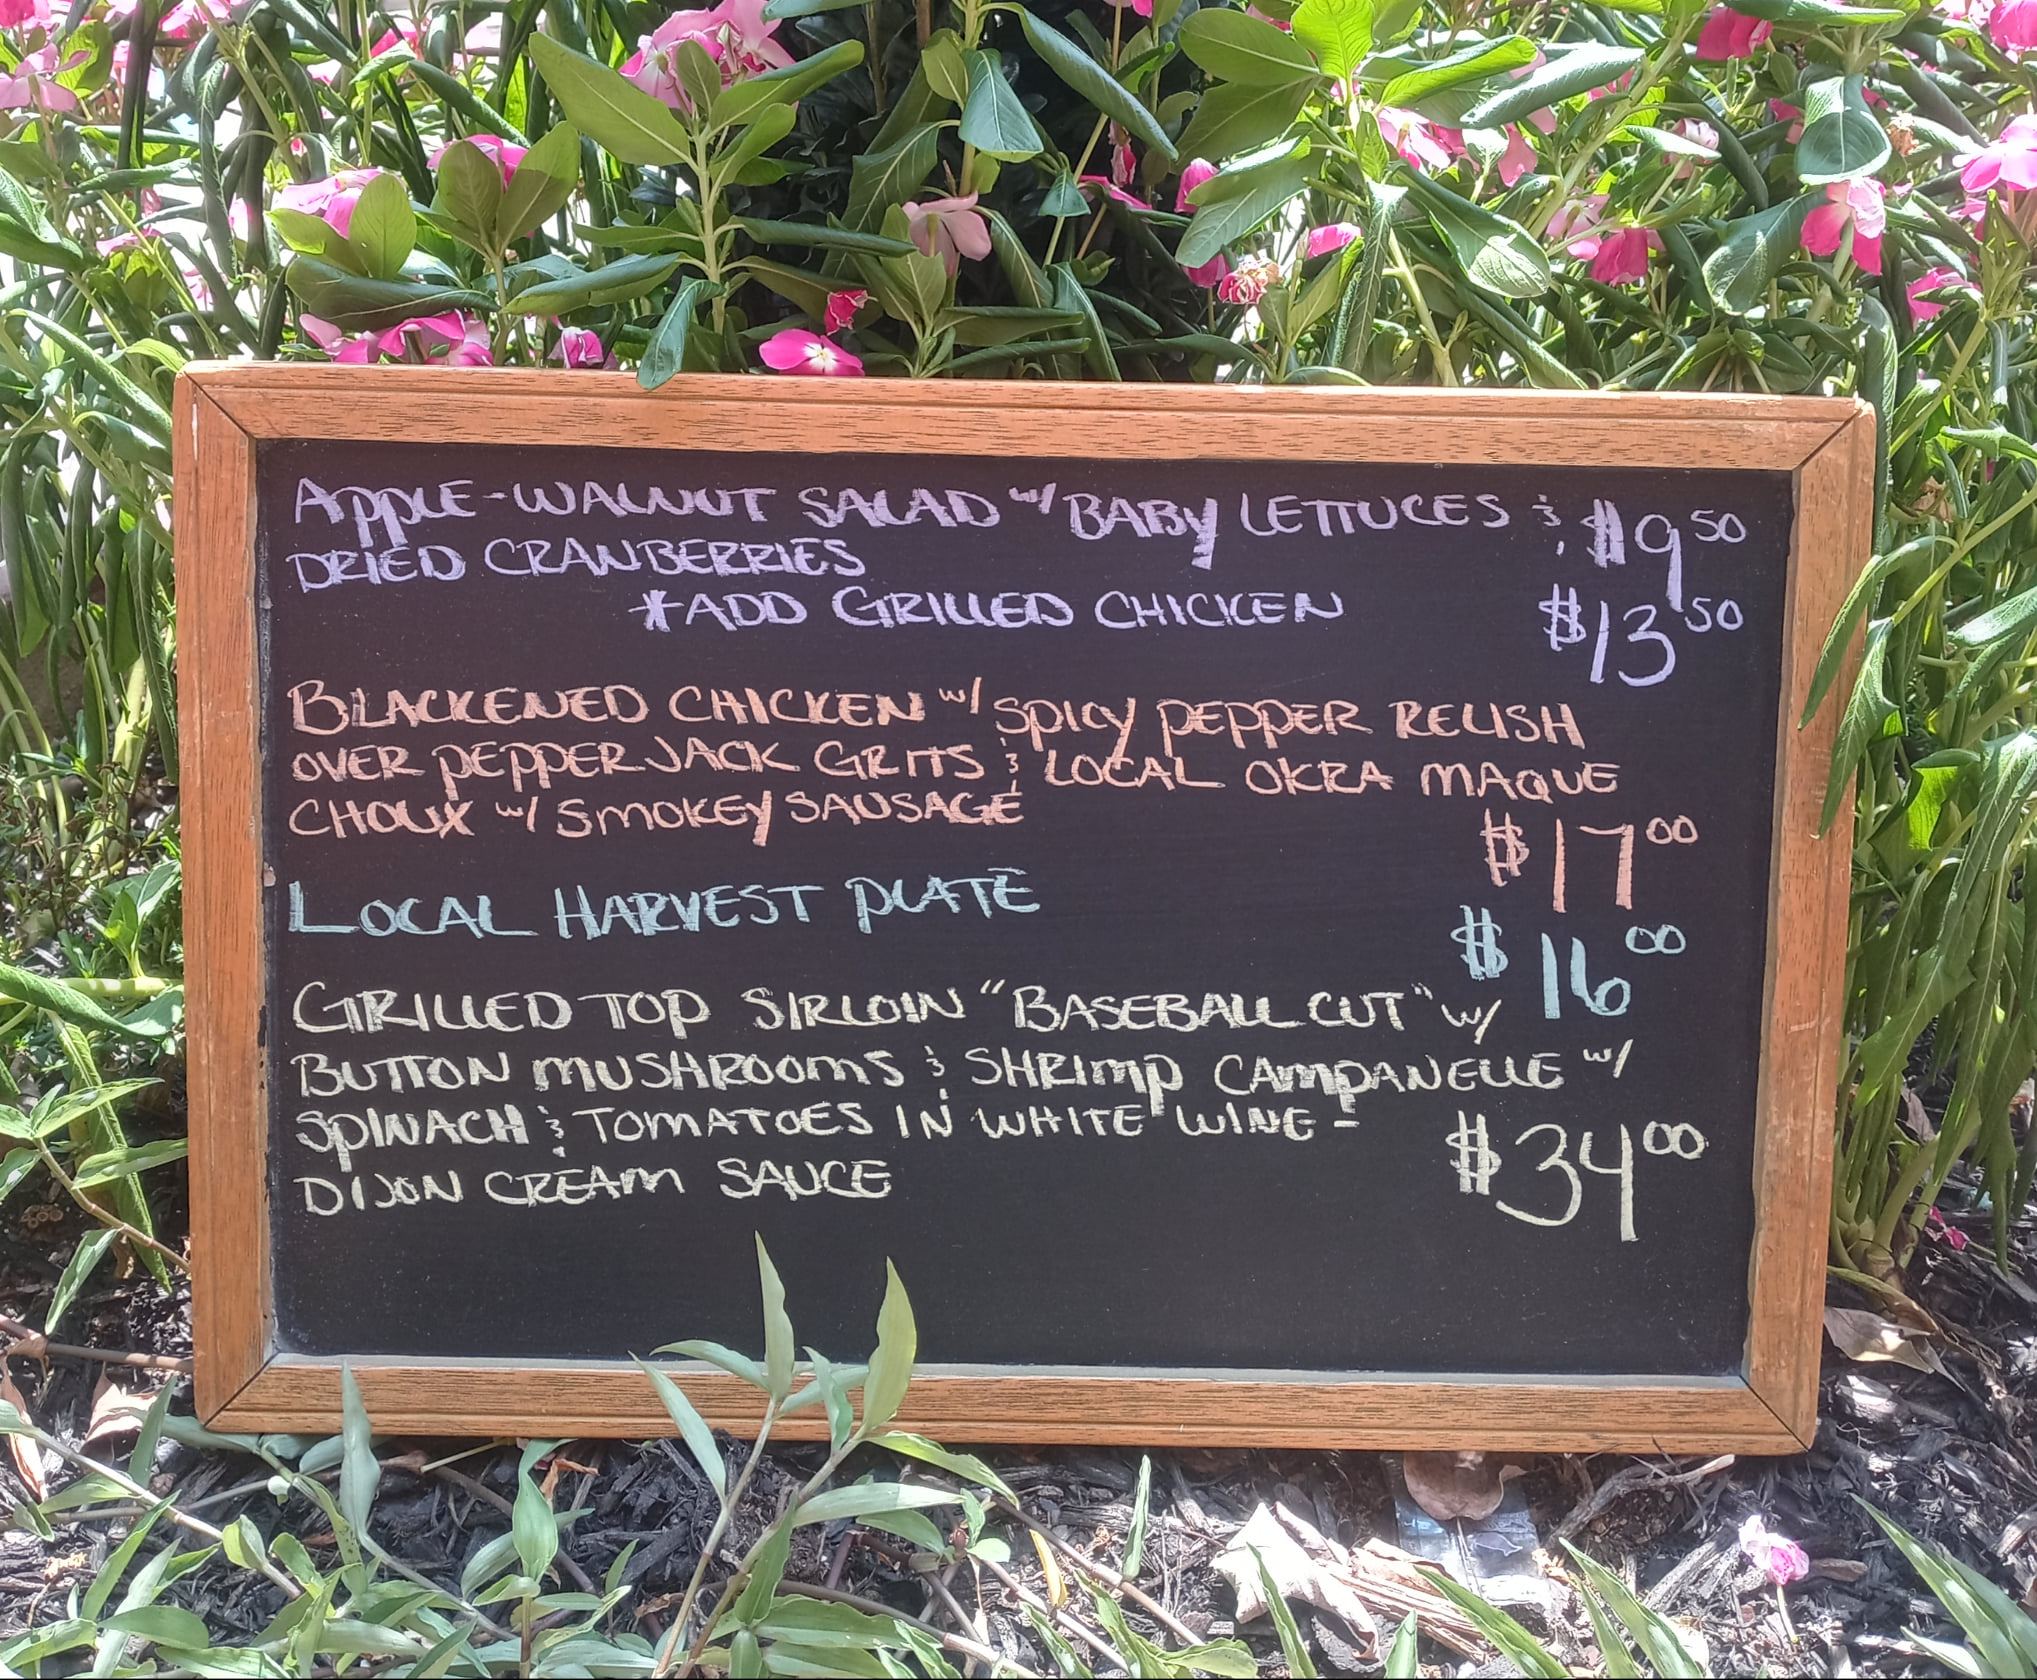 APPLE-WALNUT SALAD w/ BABY LETTUCES & $9.50
DRIED CRANBERRIES
*ADD GRILLED CHICKEN $13.50
BLACKENED CHICKEN w/ SPICY PEPPER RELISH
OVER PEPPER JACK GRITS & LOCAL OKRA MAQUE
CHOUX w/ SMOKEY SAUSAGE
$17.00
LOCAL HARVEST PLATE $16.00
GRILLED TOP SIRLOIN "BASEBALL CUT" w/
BUTTON MUSHROOMS & SHRIMP CAMPANELLE w/
SPINACH & TOMATOES IN WHITE WINE- $34.00
DIJON CREAM SAUCE